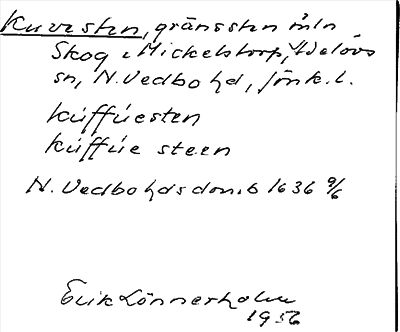 Kuvesten, gränssten mln
Skog, Mickelstorp, Adelövs
sn, N. Vedbo hd, Jönk. l.
kúffúesten
kúffúe steen
N. Vedbo hds domb 1636 9/6
Erik Lönnerholm
1956